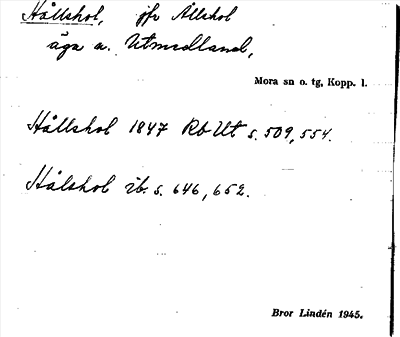 Hållshol, jfr Ållshol
äga n. Utmedland,
Mora sn o. tg, Kopp. l.
Hållshol 1847 Rb Ut s. 509, 554.
Hålshol ib. s. 646, 652.
Bror Lindén 1945.